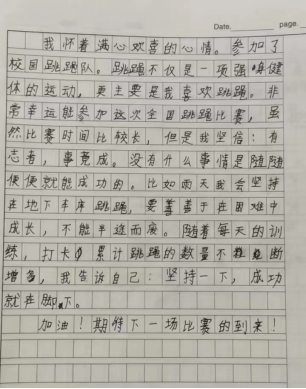 Date. page.
我怀着满心欢喜的心情。参加了
校园跳跳队。跳跳不仅是一项强唤健
体的运动，更主要是我喜欢跳跳。非
常幸运能参加这次全国跳跳比赛，虽
然比赛时间比较长，但是我坚信：有
志者，事竟成。没有什么事情是随随
便便就能成功的。比如雨天我会坚持
在地下车库跳跳，要善于在困难中
成长，不能半途而废。随着每天的训
练，打卡累计跳跳的数量不断
增多，我告诉自己：坚持一下，成功
就在脚下。
加油！期待下一场比赛的到来！